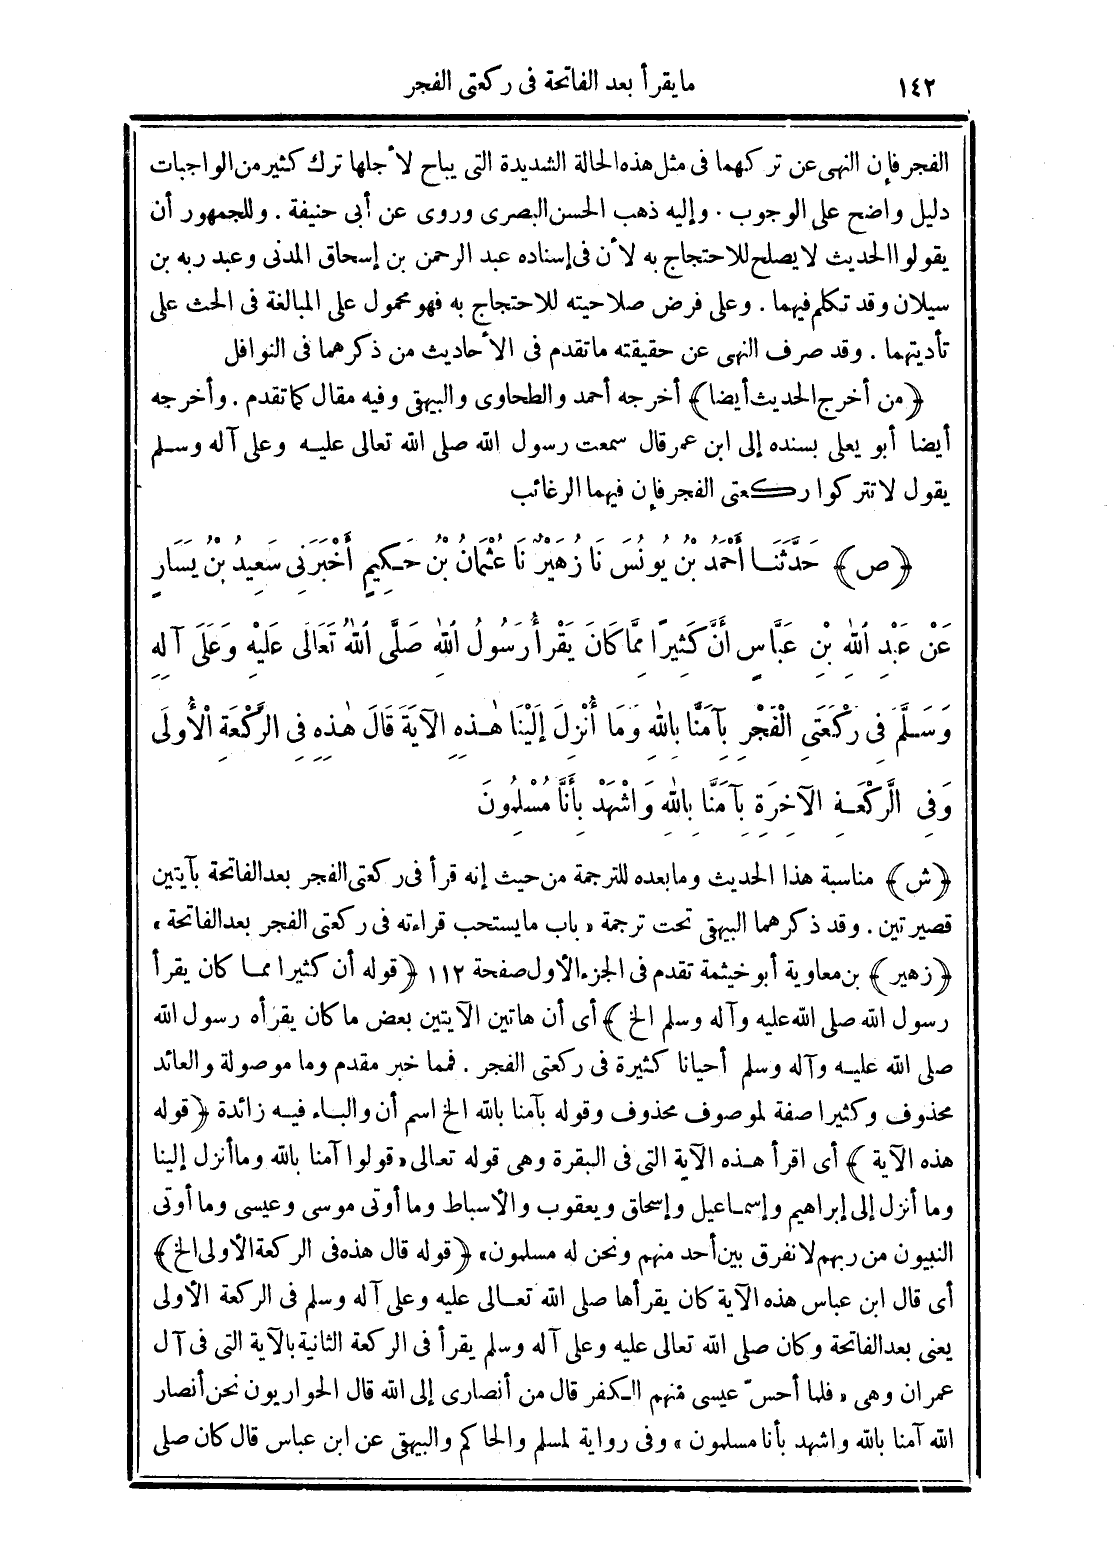 ١٤٢ ما يقرأ بعد الفاتحة فى ركعتى الفجر
الفجر فإن النهى عن تركهما فى مثل هذه الحالة الشديدة التى يباح لأجلها ترك كثير من الواجبات
دليل واضح على الوجوب . وإليه ذهب الحسن البصرى وروى عن أبى حنيفة . وللجمهور أن
يقولوا الحديث لا يصلح للاحتجاج به لأن فى إسناده عبد الرحمن بن إسحاق المدنى وعبد ربه بن
سيلان وقد تكلم فيهما . وعلى فرض صلاحيته للاحتجاج به فهو محمول على المبالغة فى الحث على
تأديتهما . وقد صرف النهى عن حقيقته ما تقدم فى الأحاديث من ذكرهما فى النوافل
﴿من أخرج الحديث أيضا﴾ أخرجه أحمد والطحاوى والبيهقى وفيه مقال كما تقدم . وأخرجه
أيضا أبو يعلى بسنده إلى ابن عمر قال سمعت رسول الله صلى الله تعالى عليه وعلى آله وسلم
يقول لا تتركوا ركعتى الفجر فإن فيهما الرغائب
﴿ص﴾ حَدَّثَنَا أَحْمَدُ بْنُ يُونُسَ نَا زُهَيْرٌ نَا عُثْمَانُ بْنُ حَكِيمٍ أَخْبَرَنِى سَعِيدُ بْنُ يَسَارٍ
عَنْ عَبْدِ اللهِ بْنِ عَبَّاسٍ أَنَّ كَثِيرًا مِمَّا كَانَ يَقْرَأُ رَسُولُ اللهِ صَلَّى اللهُ تَعَالَى عَلَيْهِ وَعَلَى آلِهِ
وَسَلَّمَ فِى رَكْعَتَىِ الْفَجْرِ بِآمَنَّا بِاللهِ وَمَا أُنْزِلَ إِلَيْنَا هٰذِهِ الآيَةَ قَالَ هٰذِهِ فِى الرَّكْعَةِ الْأُولَى
وَفِى الرَّكْعَةِ الآخِرَةِ بِآمَنَّا بِاللهِ وَاشْهَدْ بِأَنَّا مُسْلِمُونَ
﴿ش﴾ مناسبة هذا الحديث وما بعده للترجمة من حيث إنه قرأ فى ركعتى الفجر بعد الفاتحة بآيتين
قصيرتين . وقد ذكرهما البيهقى تحت ترجمة « باب ما يستحب قراءته فى ركعتى الفجر بعد الفاتحة »
﴿زهير﴾ بن معاوية أبو خيثمة تقدم فى الجزء الأول صفحة ١١٢ ﴿قوله أن كثيرا مما كان يقرأ
رسول الله صلى الله عليه وآله وسلم الخ﴾ أى أن هاتين الآيتين بعض ما كان يقرأه رسول الله
صلى الله عليه وآله وسلم أحيانا كثيرة فى ركعتى الفجر . فمما خبر مقدم وما موصولة والعائد
محذوف وكثيرا صفة لموصوف محذوف وقوله بآمنا بالله الخ اسم أن والباء فيه زائدة ﴿قوله
هذه الآية﴾ أى اقرأ هذه الآية التى فى البقرة وهى قوله تعالى « قولوا آمنا بالله وما أنزل إلينا
وما أنزل إلى إبراهيم وإسماعيل وإسحاق ويعقوب والأسباط وما أوتى موسى وعيسى وما أوتى
النبيون من ربهم لا نفرق بين أحد منهم ونحن له مسلمون » ﴿قوله قال هذه فى الركعة الأولى الخ﴾
أى قال ابن عباس هذه الآية كان يقرأها صلى الله تعالى عليه وعلى آله وسلم فى الركعة الأولى
يعنى بعد الفاتحة وكان صلى الله تعالى عليه وعلى آله وسلم يقرأ فى الركعة الثانية بالآية التى فى آل
عمران وهى « فلما أحسّ عيسى منهم الكفر قال من أنصارى إلى الله قال الحواريون نحن أنصار
الله آمنا بالله واشهد بأنا مسلمون » وفى رواية لمسلم والحاكم والبيهقى عن ابن عباس قال كان صلى